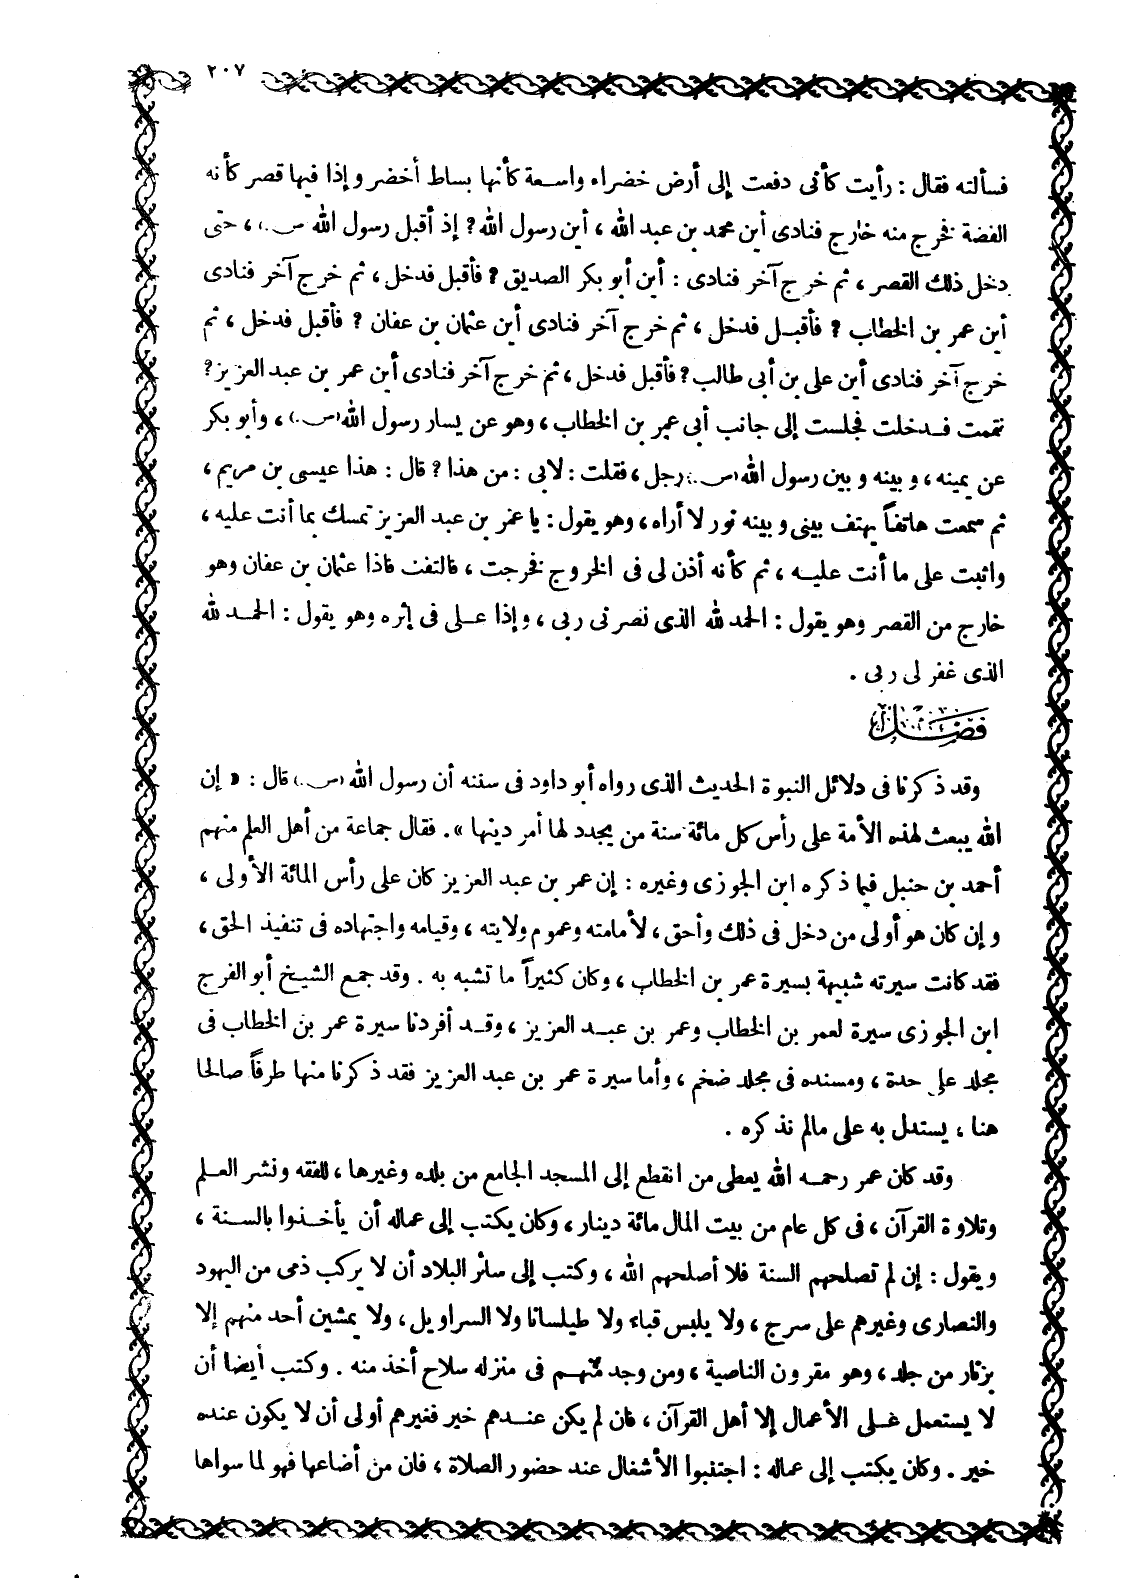 ٢٠٧
فسألته فقال : رأيت كأنى دفعت إلى أرض خضراء واسعة كأنها بساط أخضر وإذا فيها قصر كأنه
الفضة فخرج منه خارج فنادى أين محمد بن عبد الله ، أين رسول الله ? إذ أقبل رسول الله (ص.) ، حتى
دخل ذلك القصر ، ثم خرج آخر فنادى : أين أبو بكر الصديق ? فأقبل فدخل ، ثم خرج آخر فنادى
أين عمر بن الخطاب ? فأقبل فدخل ، ثم خرج آخر فنادى أين عثمان بن عفان ? فأقبل فدخل ، ثم
خرج آخر فنادى أين على بن أبى طالب ? فأقبل فدخل ، ثم خرج آخر فنادى أين عمر بن عبد العزيز ?
فقمت فدخلت فجلست إلى جانب أبى عمر بن الخطاب ، وهو عن يسار رسول الله (ص.) ، وأبو بكر
عن يمينه ، وبينه وبين رسول الله (ص.) رجل ، فقلت : لابى : من هذا ? قال : هذا عيسى بن مريم ،
ثم سمعت هاتفاً يهتف بينى وبينه نور لا أراه ، وهو يقول : يا عمر بن عبد العزيز تمسك بما أنت عليه ،
واثبت على ما أنت عليه ، ثم كأنه أذن لى فى الخروج فخرجت ، فالتفت فاذا عثمان بن عفان وهو
خارج من القصر وهو يقول : الحمد لله الذى نصرنى ربى ، وإذا على فى إثره وهو يقول : الحمد لله
الذى غفر لى ربى .
فصل
وقد ذكرنا فى دلائل النبوة الحديث الذى رواه أبو داود فى سننه أن رسول الله (ص.) قال : « إن
الله يبعث لهذه الأمة على رأس كل مائة سنة من يجدد لها أمر دينها » . فقال جماعة من أهل العلم منهم
أحمد بن حنبل فيما ذكره ابن الجوزى وغيره : إن عمر بن عبد العزيز كان على رأس المائة الأولى ،
وإن كان هو أولى من دخل فى ذلك وأحق ، لأمامته وعموم ولايته ، وقيامه واجتهاده فى تنفيذ الحق ،
فقد كانت سيرته شبيهة بسيرة عمر بن الخطاب ، وكان كثيراً ما تشبه به . وقد جمع الشيخ أبو الفرج
ابن الجوزى سيرة لعمر بن الخطاب وعمر بن عبد العزيز ، وقد أفردنا سيرة عمر بن الخطاب فى
مجلد على حدة ، ومسنده فى مجلد ضخم ، وأما سيرة عمر بن عبد العزيز فقد ذكرنا منها طرفاً صالحا
هنا ، يستدل به على مالم نذكره .
وقد كان عمر رحمه الله يعطى من انقطع إلى المسجد الجامع من بلده وغيرها ، للفقه ونشر العلم
وتلاوة القرآن ، فى كل عام من بيت المال مائة دينار ، وكان يكتب إلى عماله أن يأخذوا بالسنة ،
ويقول : إن لم تصلحهم السنة فلا أصلحهم الله ، وكتب إلى سائر البلاد أن لا يركب ذمى من اليهود
والنصارى وغيرهم على سرج ، ولا يلبس قباء ولا طيلسانا ولا السراويل ، ولا يمشين أحد منهم إلا
بزنار من جلد ، وهو مقرون الناصية ، ومن وجد منهم فى منزله سلاح أخذ منه . وكتب أيضا أن
لا يستعمل على الأعمال إلا أهل القرآن ، فان لم يكن عندهم خير فغيرهم أولى أن لا يكون عنده
خير . وكان يكتب إلى عماله : اجتنبوا الأشغال عند حضور الصلاة ، فان من أضاعها فهو لما سواها